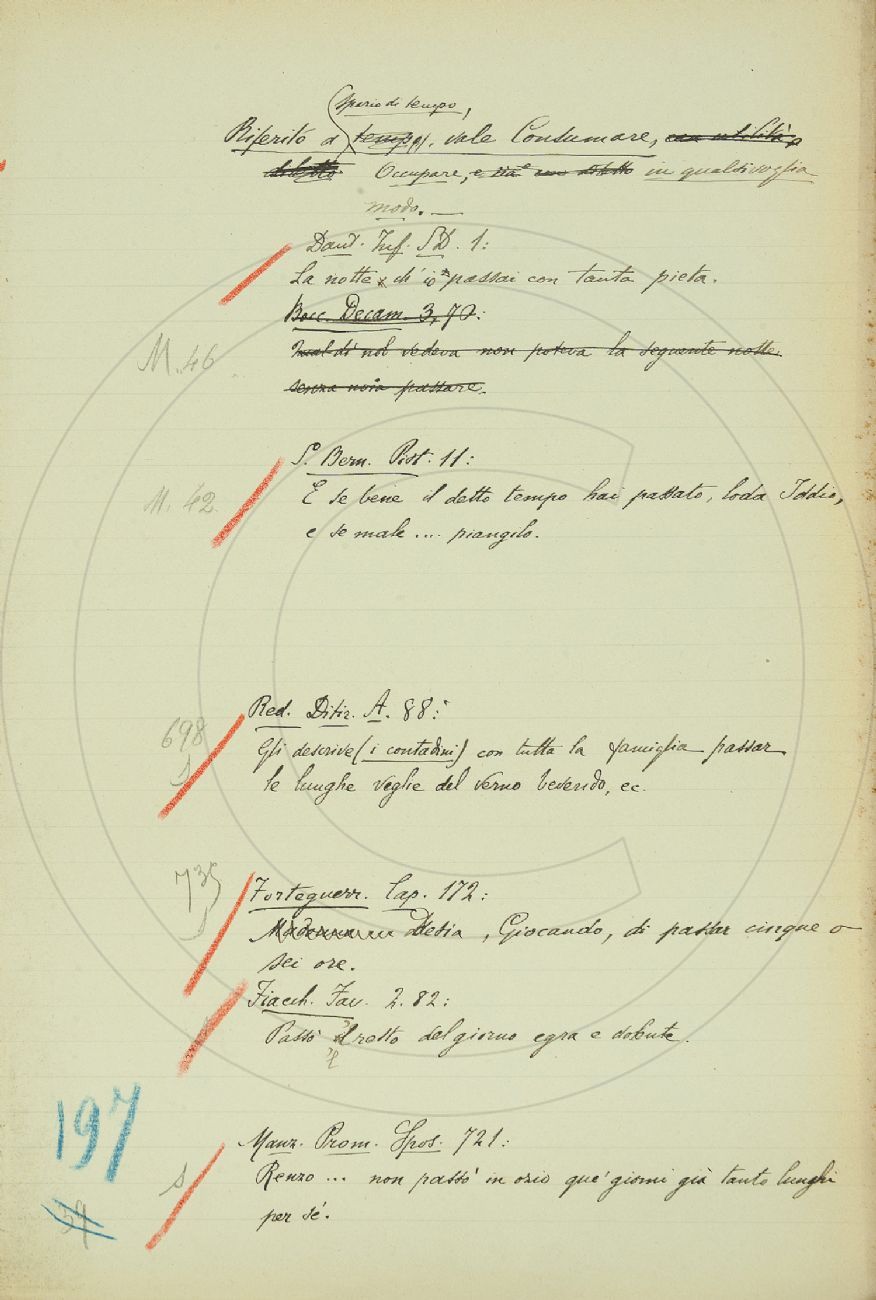 spazio di tempo,
Riferito a tempo, vale Consumare, con utilità o
diletto. Occupare, in qualsivoglia
modo. —
Dant. Inf. SD. 1:
La notte ch' io passai con tanta pieta.
Bocc. Decam. 3, 70:
Qual dì nol vedeva non poteva la seguente notte
senza noia passare.
M. 46
S. Bern. Pist. 11:
E se bene il detto tempo hai passato, loda Iddio,
e se male ... piangilo.
M. 42.
Red. Ditir. A. 88:
Gli descrive (i contadini) con tutta la famiglia passar
le lunghe veglie del verno bevendo, ec.
698
S
Forteguerr. Cap. 172:
Desia, Giocando, di passar cinque o
sei ore.
735
S
Fiacch. Fav. 2. 82:
Passò 'l resto del giorno egra e dolente.
197
59
Manz. Prom. Spos. 721:
Renzo ... non passò in ozio que' giorni già tanto lunghi
per sé.
S